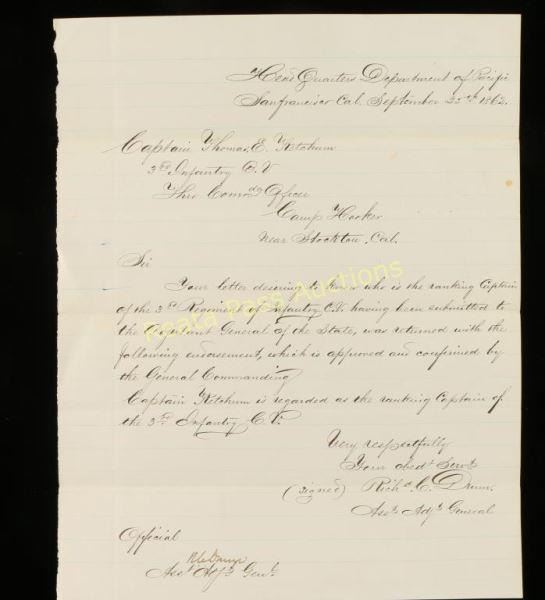 Head Quarters Department of Pacific
Sanfrancisco Cal. September 25th 1862.
Captain Thomas. E. Ketchum
3rd Infantry C. V
Thro Comdg Officer
Camp Hooker
Near Stockton, Cal.
Sir
Your letter desiring to know who is the ranking Captain
of the 3rd Regiment of Infantry C.V. having been submitted to
the Adjutant General of the State, was returned with the
following endorsement, which is approved and confirmed by
the General Commanding
Captain Ketchum is regarded as the ranking Captain of
the 3rd Infantry C.V.
Very respectfully
Your obedt Servt
(signed) Richd C. Drum.
Asst Adjt General
Official
R C Drum
Asst Adjt Genl.
Peaca Pass Auctions